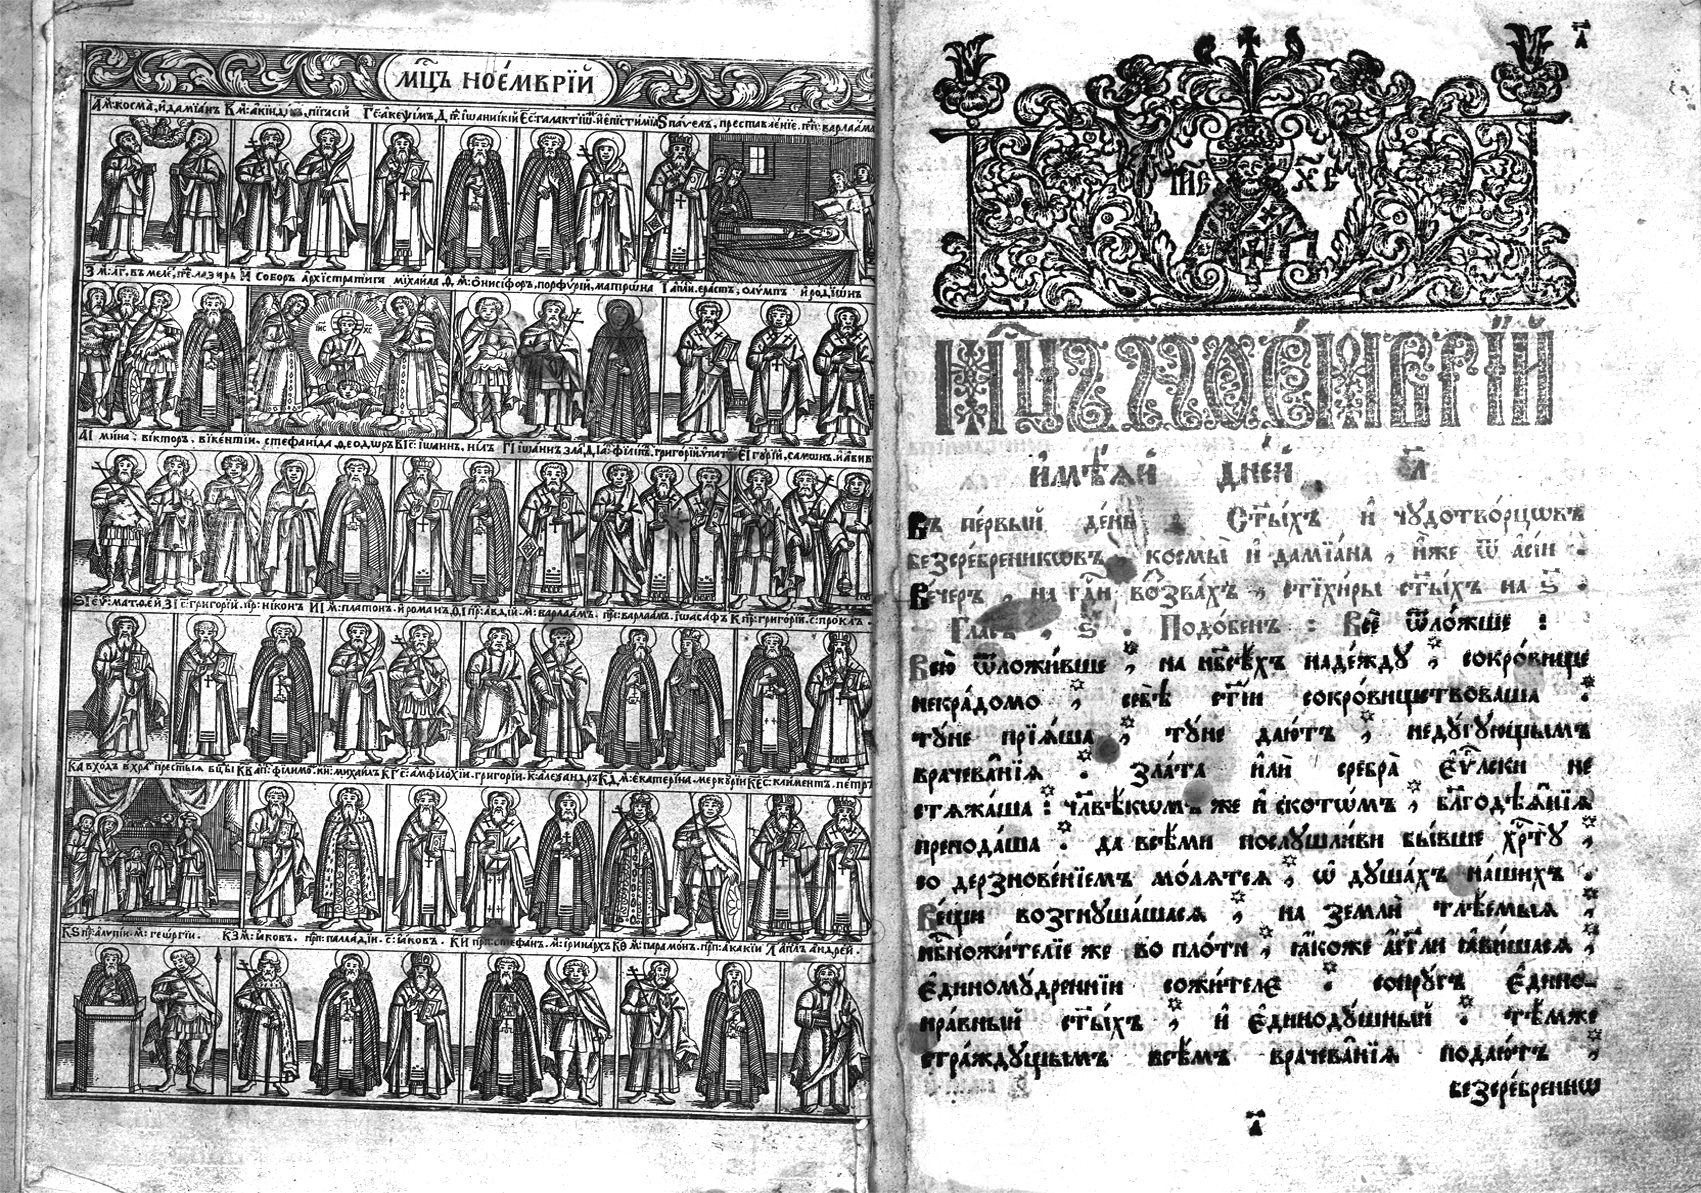 мц҃ъ ноє́мврїй
А м҃: косма, и҆ дамїанъ В м҃: акїндѵнъ, пїгасїй Г с҃: акеѱїмъ Д п҃р: їѡаникїй Є с҃: галактїѡ҃: и҆ єпїстимїа Ѕ павелъ, преставленїе. прп҃: варлаама
З м҃: аг҃, въ меле, прп҃: лазарь И соборъ архїстратига мїхаила Ѳ м҃: ѻнисїфоръ, порфѵрїй, матрѡна І ап҃ли: єрастъ, олѵмпъ и родїѡнъ
АІ мина: вїкторъ, вїкентїи, стефанїда, ѳеодѡръ ВІ с҃: їѡаннъ, нілъ ГІ їѡаннъ зла ДІ а҃: філїпъ, григорїй ѵпатъ ЕІ гѵрїй, самѡнъ, и авивъ
ЅІ єѵ: матѳей ЗІ с҃: григорїй. пр҃: никон ИІ м҃: платонъ. и романъ ѲІ пр҃: авдїй. м҃: варлаамъ. пр҃: варлаамъ. їѡасафъ К пр҃: григорїй. с҃: проклъ.
КА входъ в хра҃ прест҃ыя бц҃ы КВ ап҃: філимо҃. кн҃: михаилъ КГ с҃: амфїлохїи. григорїи. к: алеѯандръ КД м҃: єкатерїна. меркурїй КЕ с҃: климентъ. петръ
КЅ пр҃: алѵпїи. м҃: геѡргїи. КЗ м҃: їаковъ. прп҃: палладїи. с҃: їаковъ. КИ прп҃: стефанъ. м҃: їринархъ КѲ м҃: парамонъ. прп҃: акакїи Л ап҃лъ андрей.
а҃
І҃ИС Х҃С
МЦ҃Ъ НОЄ́МВРЇЙ
и҆мѣ́ѧй дні́й л҃
Въ пе́рвый де́нь : Ст҃ы́хъ и҆ чꙋдотво́рцѡвъ
безсре́бренникѡвъ, космы̀ и҆ дамїа́на, и҆́же ѿ а҆сі́и :
Ве́черъ, на гд҃и воззва́хъ, стїхи́ры ст҃ы́хъ на ѕ҃ .
Гла́съ, ѕ҃ . Подо́бенъ : Всѐ ѿло́жше :
Всю̀ ѿложи́вше, на нб҃сѣ́хъ наде́ждꙋ, сокро́вище
некра́домо, себѣ̀ ст҃і́и сокро́вищствоваша :
тꙋ́не прїѧ́ша, тꙋ́не даю́тъ, недꙋ́гꙋющымъ
врачева̑нїѧ : зла́та и҆лѝ сребра̀ є҆ѵⷢ҇лски не
стѧжа́ша : чл҃вѣ́кѡмъ же и҆ скотѡ́мъ, бл҃годѣѧ̑нїѧ
препода́ша : да всѣ́ми послꙋшли́ви бы́вше хрⷭ҇тꙋ̀,
со дерзнове́нїемъ мо́лѧтсѧ, ѡ҆ дꙋша́хъ на́шихъ .
Ве́щи возгнꙋша́шасѧ, на землѝ тлѣ́емыѧ,
нб҃ножи́телїе же во пло́ти, ꙗ҆́коже а҆́гг҃ли ꙗ҆ви́шасѧ,
є҆диномꙋ́дреннїи сожи́телє : сопрꙋ́гъ є҆дино-
нра́вный ст҃ы́хъ, и҆ є҆динодꙋ́шный : тѣ́мже
стра́ждꙋщымъ всѣ̑мъ врачева̑нїѧ подаю́тъ,
безсре́бреннѡ
а҃